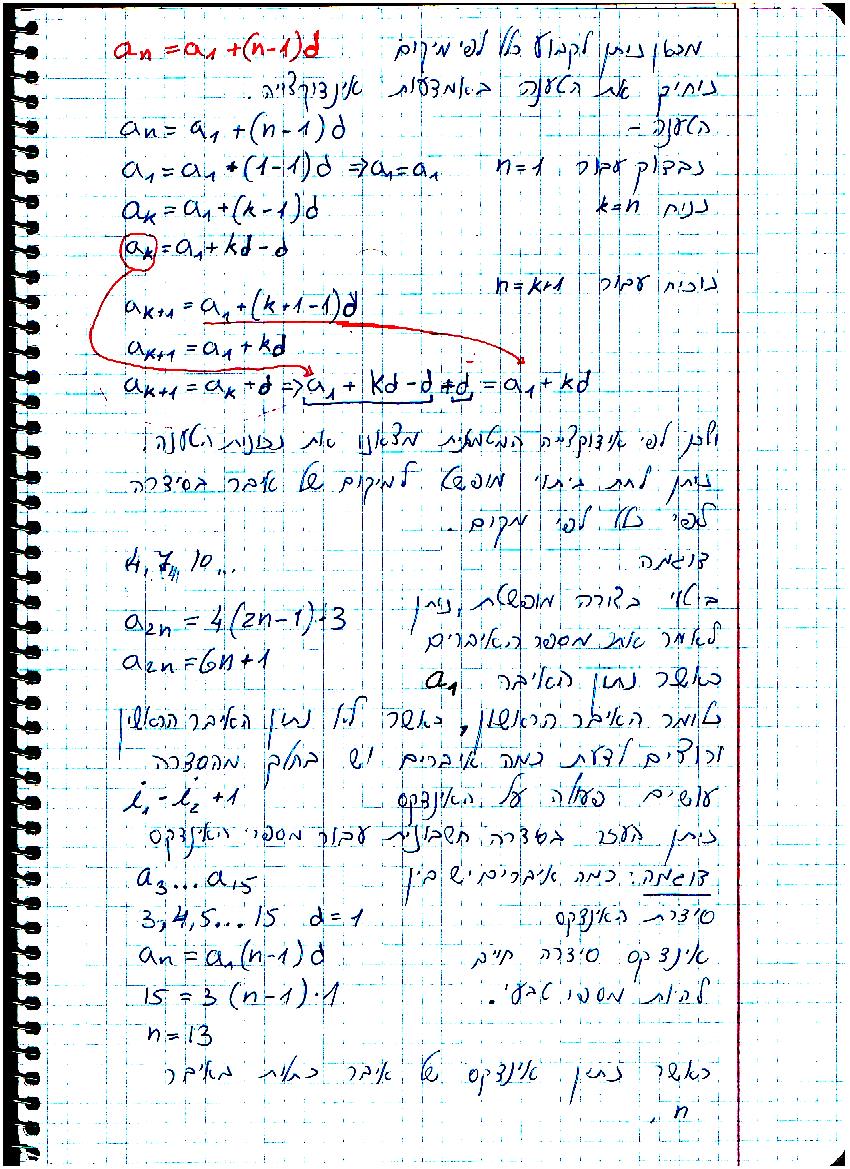 מכאן ניתן לקבוע כלל לפי מיקום a_n = a_1 + (n-1)d
נוכיח את הטענה באמצעות אינדוקציה.
הטענה - a_n = a_1 + (n-1)d
נבדוק עבור n=1 a_1 = a_1 + (1-1)d ⇒ a_1 = a_1
נניח k=n a_k = a_1 + (k-1)d
a_k = a_1 + kd - d
נוכיח עבור n=k+1
a_{k+1} = a_1 + (k+1-1)d
a_{k+1} = a_1 + kd
a_{k+1} = a_k + d ⇒ a_1 + kd - d + d = a_1 + kd
ולכן לפי אידוקציה המטמאית מצאנו את נכונות הטענה.
ניתן לתת ביטוי מופשט למיקום של איבר בסידרה
לפי כלל לפי מקום.
דוגמה 4, 7, 10...
ביטוי בצורה מופשטת, ניתן a_{2n} = 4(2n-1)·3
לאמר את מספר האיברים
a_{2n} = 6n+1
כאשר נתון האיבר a_1
כלומר האיבר הראשון, כאשר לא נתון האיבר הראשון
ורוצים לדעת כמה איברים יש בחלק מהסדרה
עושים פעולה על האינדקס i_1 - i_2 + 1
ניתן העזר בסדרה חשבונית עבור מספרי האינדקס
דוגמה: כמה איברים יש בין a_3...a_{15}
סידרת האינדקס 3,4,5...15 d=1
אינדקס סידרה חייב a_n = a_1(n-1)d
להיות מספר טבעי. 15 = 3(n-1)·1
n=13
כאשר נתון אינדקס של איבר כתלות באיבר
n.